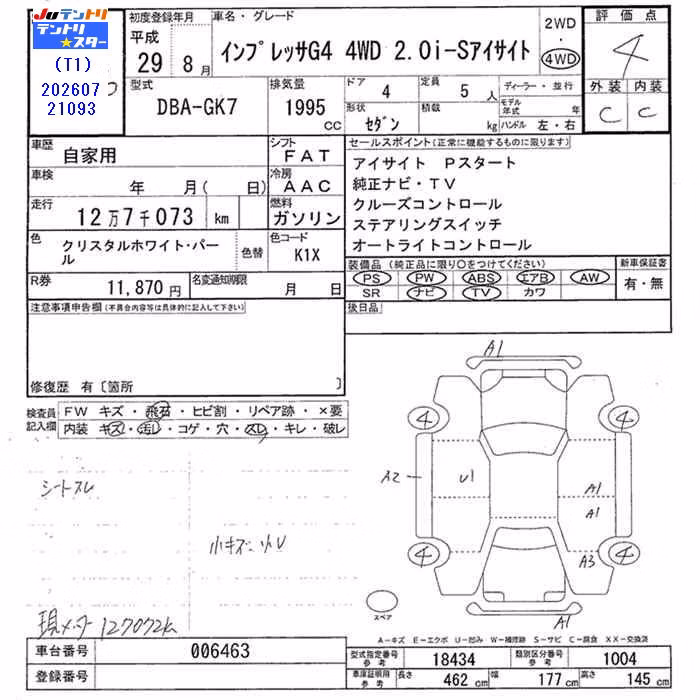 Juテントリ
テントリ★スター
(T1)
202607
21093
初度登録年月
平成
29 8月
車名・グレード
インプレッサG4 4WD 2.0i-Sアイサイト
2WD
・
4WD
評価点
4
外装 内装
C C
型式
DBA-GK7
排気量
1995
cc
ドア
4
定員
5人
形状
セダン
積載
kg
ディーラー・並行
モデル年式 年
ハンドル 左・右
車歴
自家用
シフト
FAT
車検
年 月( 日)
冷房
AAC
走行
12万7千073 km
燃料
ガソリン
色
クリスタルホワイト・パール
色替
色コード
K1X
R券
11,870円
名変通知期限
月 日
セールスポイント(正常に機能するものに限ります)
アイサイト Pスタート
純正ナビ・TV
クルーズコントロール
ステアリングスイッチ
オートライトコントロール
装備品(純正品に限り○をつけてください)
PS PW ABS エアB AW
SR ナビ TV カワ
新車保証書
有・無
後日品
注意事項申告欄(不具合内容等は具体的に記入して下さい)
修復歴 有〔箇所 〕
検査員記入欄
FW キズ・飛石・ヒビ割・リペア跡・×要
内装 キズ・汚レ・コゲ・穴・スレ・キレ・破レ
シートスレ
小キズ 小U
現メーター127072k
A1
4 4
A2 U1 A1
A1
4 4
A3
A1
スペア
A−キズ E−エクボ U−凹み W−補修跡 S−サビ C−腐食 XX−交換済
車台番号 006463
登録番号
型式指定番号 参考 18434 類別区分番号 参考 1004
車庫証明用 参考 長さ 462 cm 幅 177 cm 高さ 145 cm